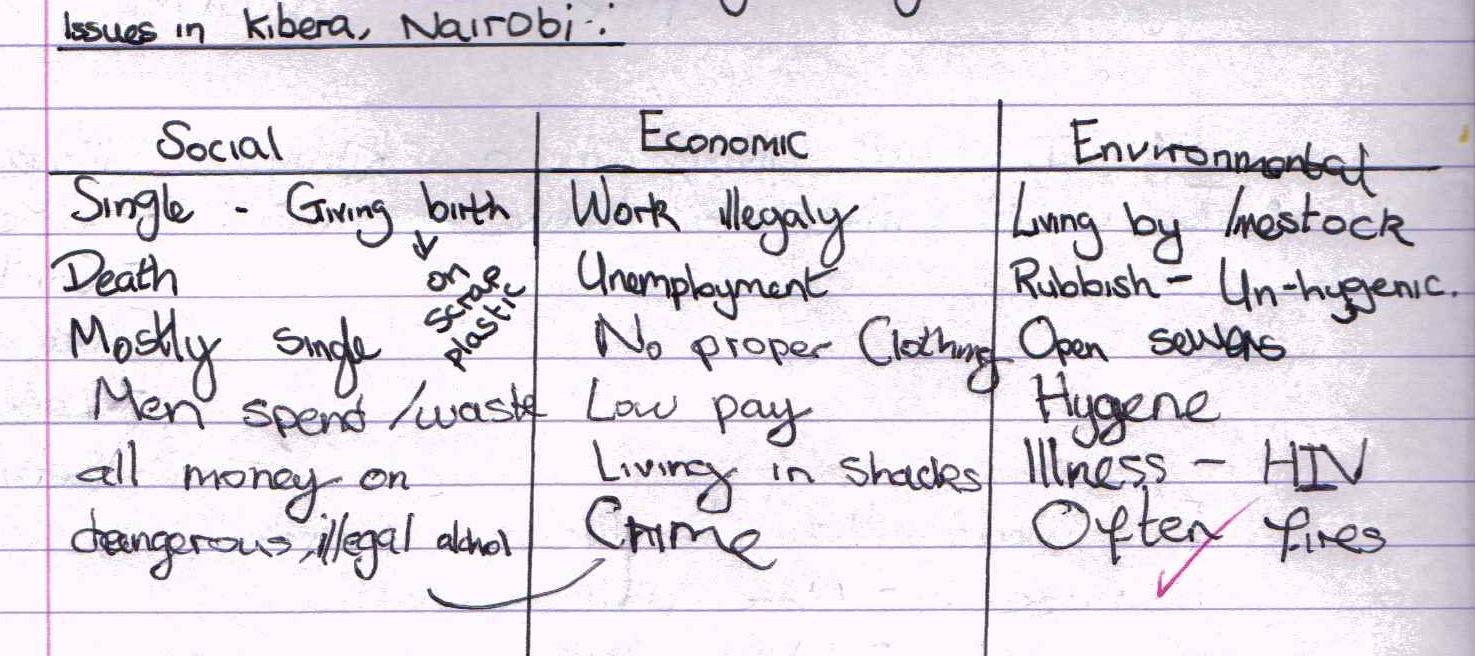 Issues in Kibera, Nairobi :
Social Economic Environmental
Single - Giving birth Work illegaly Living by livestock
↓ on scrap plastic
Death Unemployment Rubbish - Un-hygenic.
Mostly single No proper Clothing Open sewers
Men spend /waste Low pay Hygene
all money on Living in shacks Illness - HIV
dangerous, illegal alchol Crime Often fires